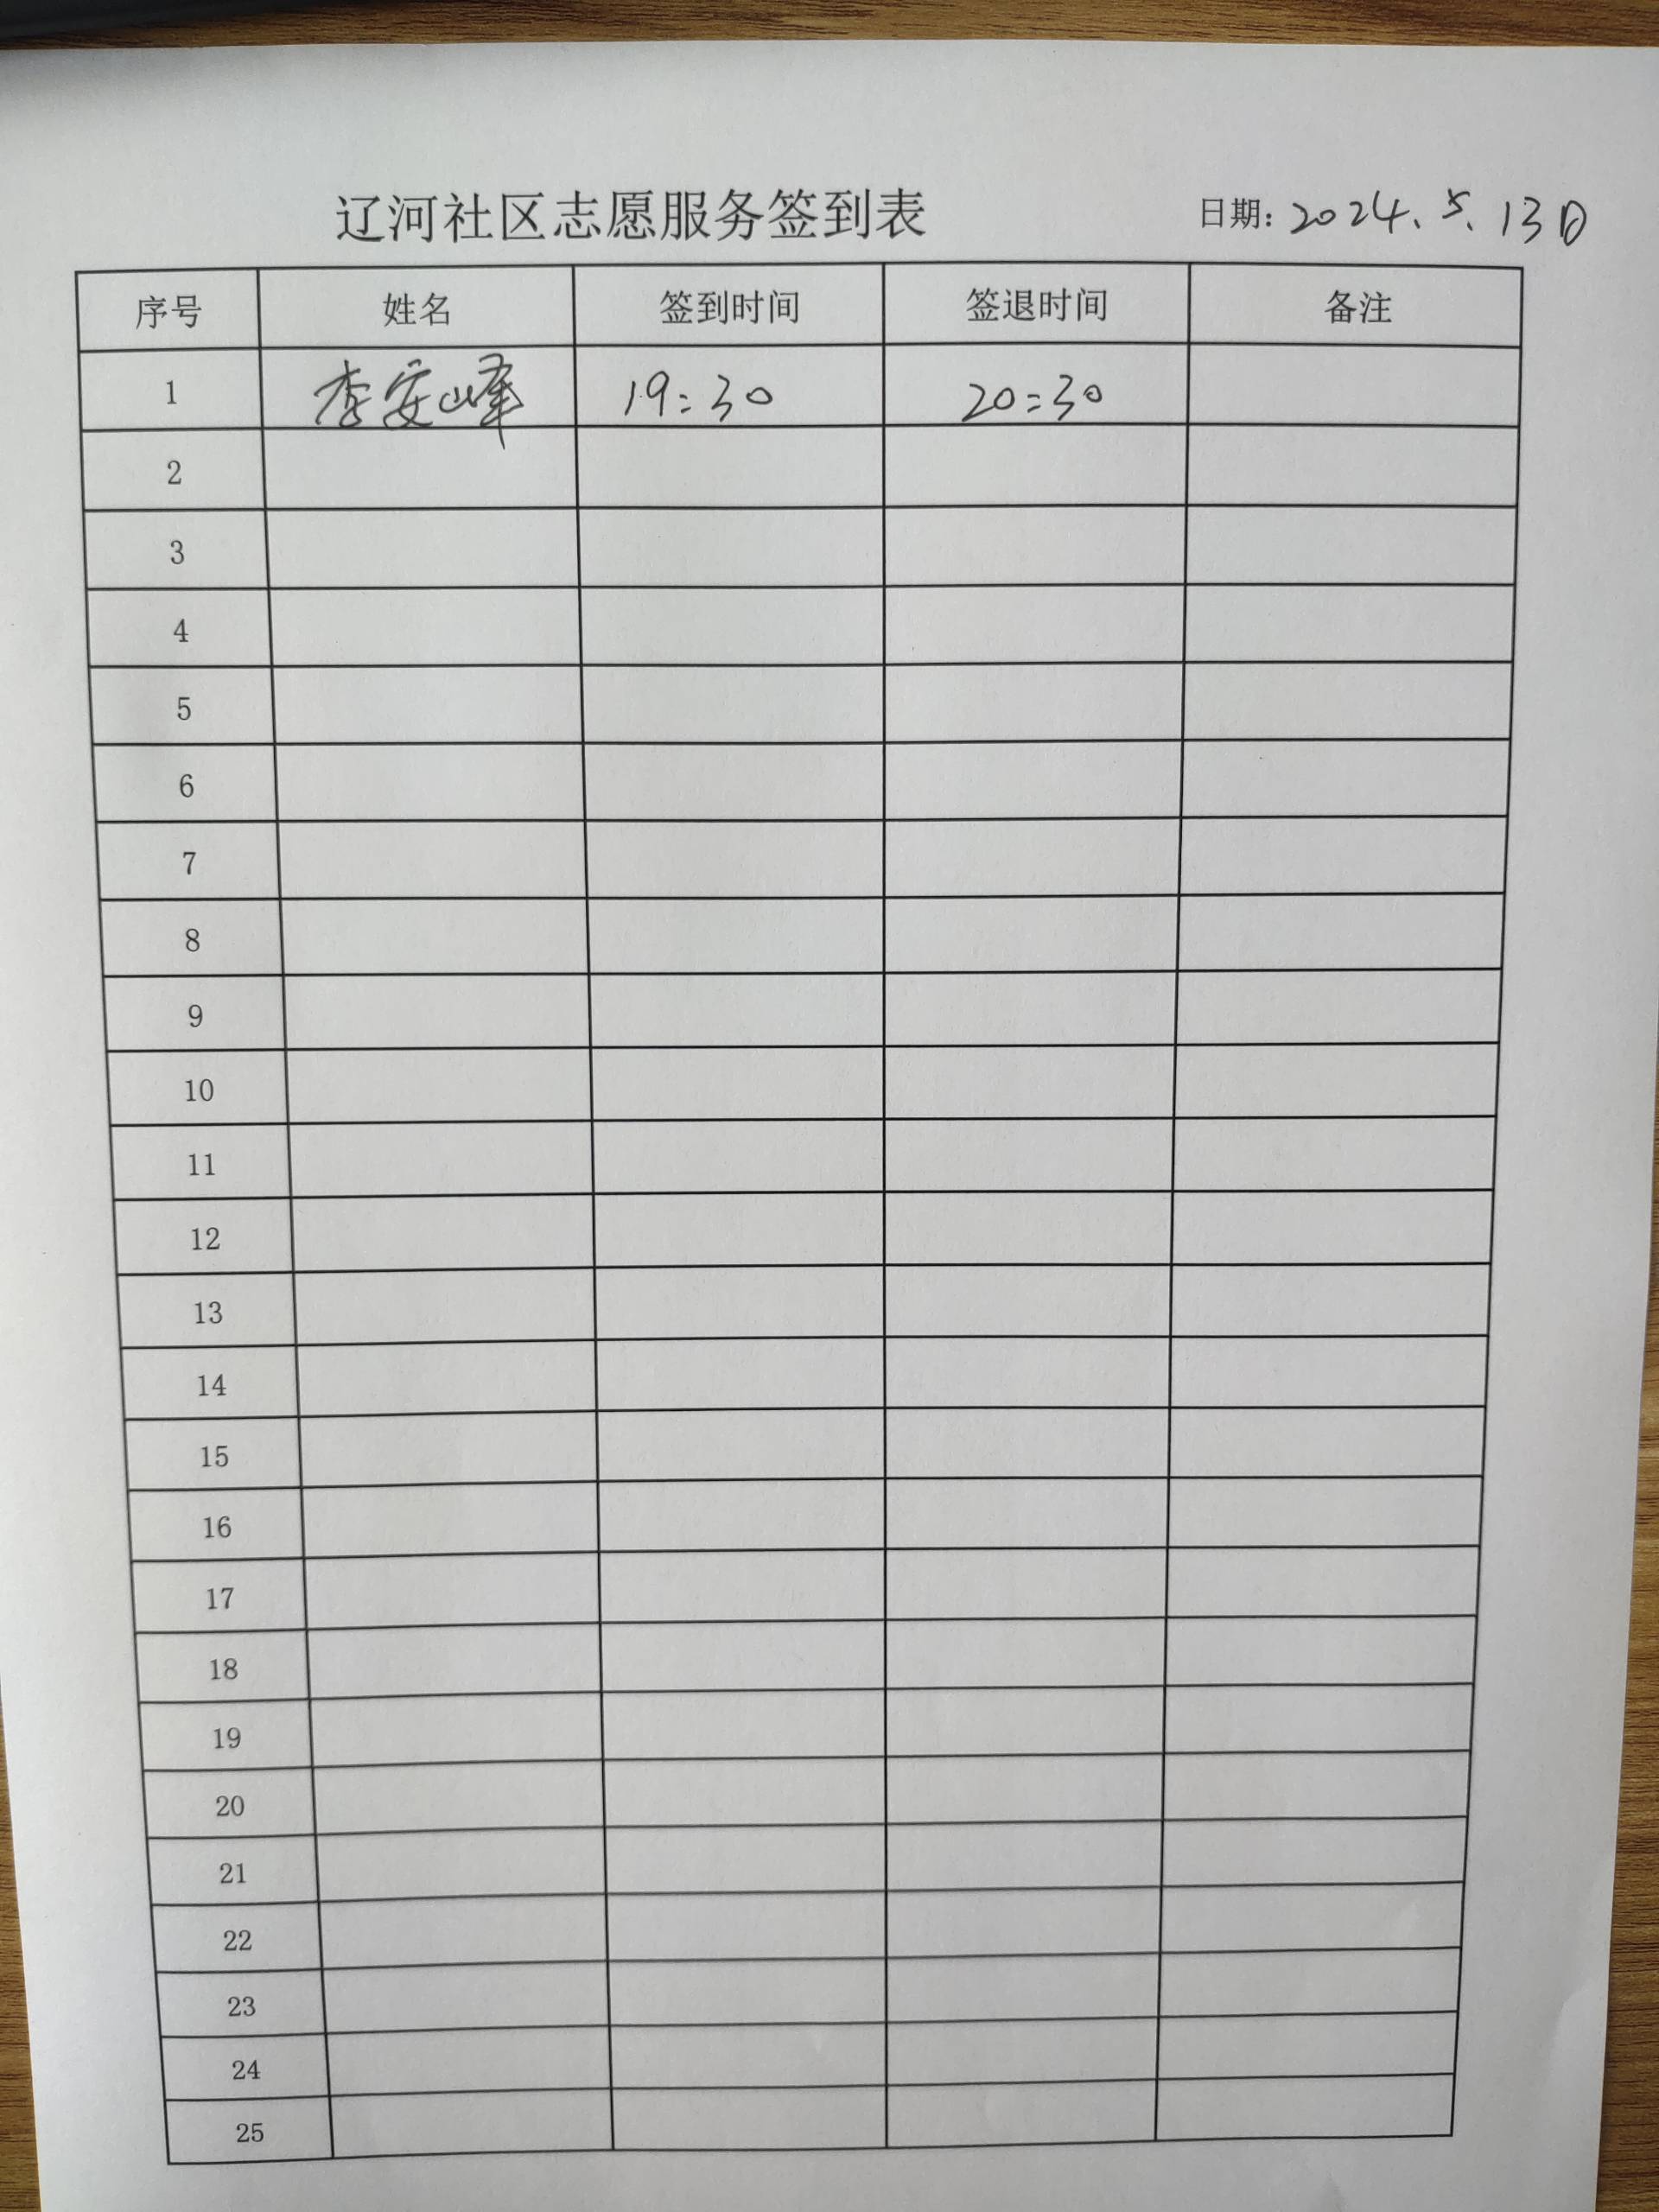 辽河社区志愿服务签到表 日期: 2024.5.13日
序号 姓名 签到时间 签退时间 备注
1 李安峰 19:30 20:30
2
3
4
5
6
7
8
9
10
11
12
13
14
15
16
17
18
19
20
21
22
23
24
25